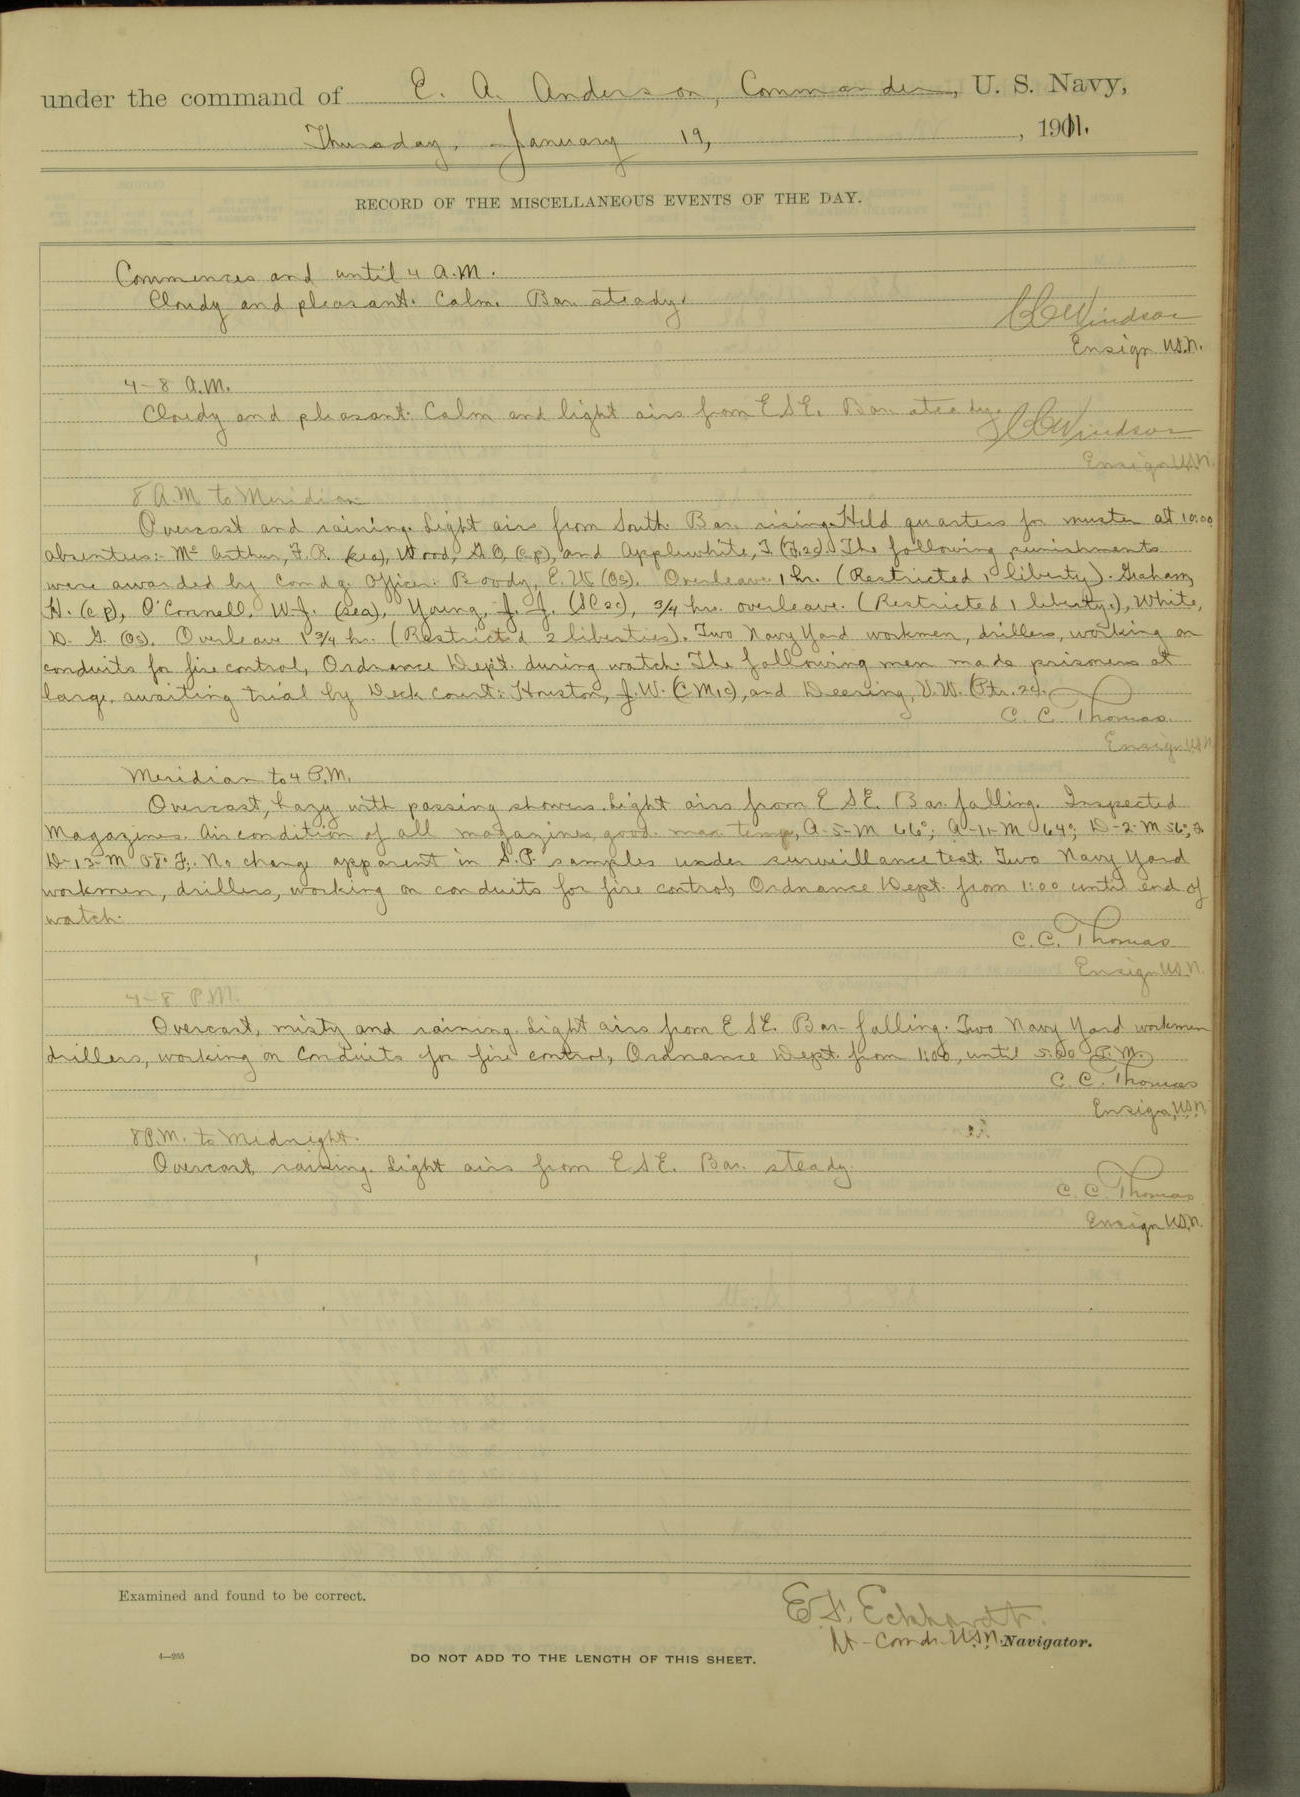 under the command of E. A. Anderson, Commander, U. S. Navy,
Thursday, January 19, , 1911.
RECORD OF THE MISCELLANEOUS EVENTS OF THE DAY.
Commences and until 4 A.M.
Cloudy and pleasant. Calm. Bar. steady.
CCWindsor
Ensign U.S.N.
4-8 A.M.
Cloudy and pleasant. Calm and light airs from ESE. Bar. steady.
CCWindsor
Ensign U.S.N.
8 A.M. to Meridian
Overcast and raining. Light airs from South. Bar. rising. Held quarters for muster at 10:00
absentees:- Mc Arthur, F.R. (sea), Wood, G.O, (c.p.), and Applewhite, T. (F.2c). The following punishments
were awarded by Comdg. Officer: Boody, E.W. (O.S). Overleave 1 hr. (Restricted 1 liberty). Graham,
H. (c p), O'Connell, W.J. (sea), Young, J. J. (SC 2c), 3/4 hrs. overleave. (Restricted 1 liberty.), White,
D. G. (OS). Overleave 1 3/4 hr. (Restricted 2 liberties). Two Navy Yard workmen, drillers, working on
conduits for fire control, Ordnance Dept. during watch. The following men made prisoners at
large, awaiting trial by Deck Court: Houston, J.W. (CM1c), and Deering, V.W. (Ptr. 2c).
C. C. Thomas
Ensign U.S.N.
Meridian to 4 P.M.
Overcast, hazy with passing showers. Light airs from ESE. Bar. falling. Inspected
Magazines. Air condition of all magazines, good. max temps, A-5-M 66°; A-11-M 64°; D-2-M 56°;
D-13-M F. No change apparent in S.P. samples under surveillance test. Two Navy Yard
workmen, drillers, working on conduits for fire control, Ordnance Dept. from 1:00 until end of
watch.
C.C. Thomas
Ensign U.S.N.
4-8 P.M.
Overcast, misty and raining. Light airs from ESE. Bar. falling. Two Navy Yard workmen
drillers, working on conduits for fire control, Ordnance Dept. from 1:00, until 5:00 P.M.
C. C. Thomas
Ensign, U.S.N.
8 P.M. to Midnight.
Overcast, raining. Light airs from ESE. Bar. steady.
C. C. Thomas
Ensign U.S.N.
Examined and found to be correct.
E.F. Eckhardt.
Lt-Comdr. U.S.N. Navigator.
4—255
DO NOT ADD TO THE LENGTH OF THIS SHEET.